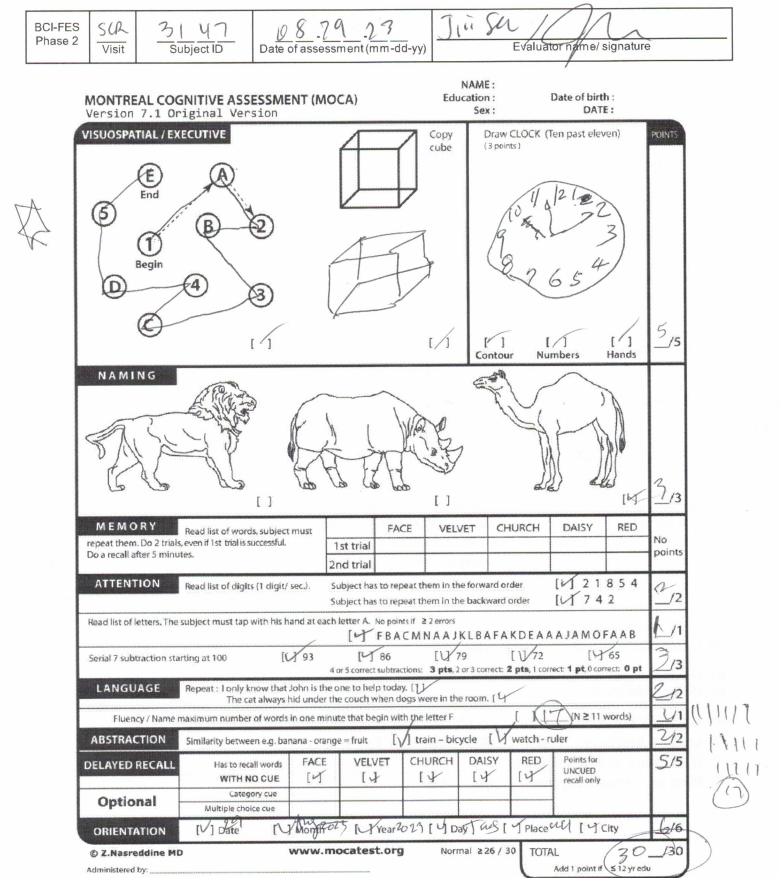 BCI-FES Phase 2 SCR Visit 3147 Subject ID 08.29.23 Date of assessment (mm-dd-yy) Evaluator name/ signature
NAME :
MONTREAL COGNITIVE ASSESSMENT (MOCA) Education : Date of birth :
Version 7.1 Original Version Sex : DATE :
VISUOSPATIAL / EXECUTIVE Copy cube Draw CLOCK (Ten past eleven) (3 points) POINTS
E A
End
5 B 2
1
Begin
D 4 3
C
11 12 1 2 3 4 5 6 7 8 9 10
[ ] [ ] [ ] [ ] [ ] 5/5
Contour Numbers Hands
NAMING
[ ] [ ] [ ] 3/3
MEMORY Read list of words, subject must repeat them. Do 2 trials, even if 1st trial is successful. Do a recall after 5 minutes. FACE VELVET CHURCH DAISY RED No points
1st trial
2nd trial
ATTENTION Read list of digits (1 digit/ sec.). Subject has to repeat them in the forward order [✓] 2 1 8 5 4
Subject has to repeat them in the backward order [✓] 7 4 2 2/2
Read list of letters. The subject must tap with his hand at each letter A. No points if ≥ 2 errors
[✓] F B A C M N A A J K L B A F A K D E A A A J A M O F A A B 1/1
Serial 7 subtraction starting at 100 [✓] 93 [✓] 86 [✓] 79 [✓] 72 [✓] 65 3/3
4 or 5 correct subtractions: 3 pts, 2 or 3 correct: 2 pts, 1 correct: 1 pt, 0 correct: 0 pt
LANGUAGE Repeat : I only know that John is the one to help today. [✓]
The cat always hid under the couch when dogs were in the room. [✓] 2/2
Fluency / Name maximum number of words in one minute that begin with the letter F [ ] 17 (N ≥ 11 words) 1/1
ABSTRACTION Similarity between e.g. banana - orange = fruit [✓] train – bicycle [✓] watch - ruler 2/2
DELAYED RECALL Has to recall words WITH NO CUE FACE [✓] VELVET [✓] CHURCH [✓] DAISY [✓] RED [✓] Points for UNCUED recall only 5/5
17
Optional Category cue
Multiple choice cue
ORIENTATION [✓] Date [✓] Month [✓] Year 2023 [✓] Day [✓] Place [✓] City 6/6
© Z.Nasreddine MD www.mocatest.org Normal ≥ 26 / 30 TOTAL 30/30
Administered by: Add 1 point if ≤ 12 yr edu